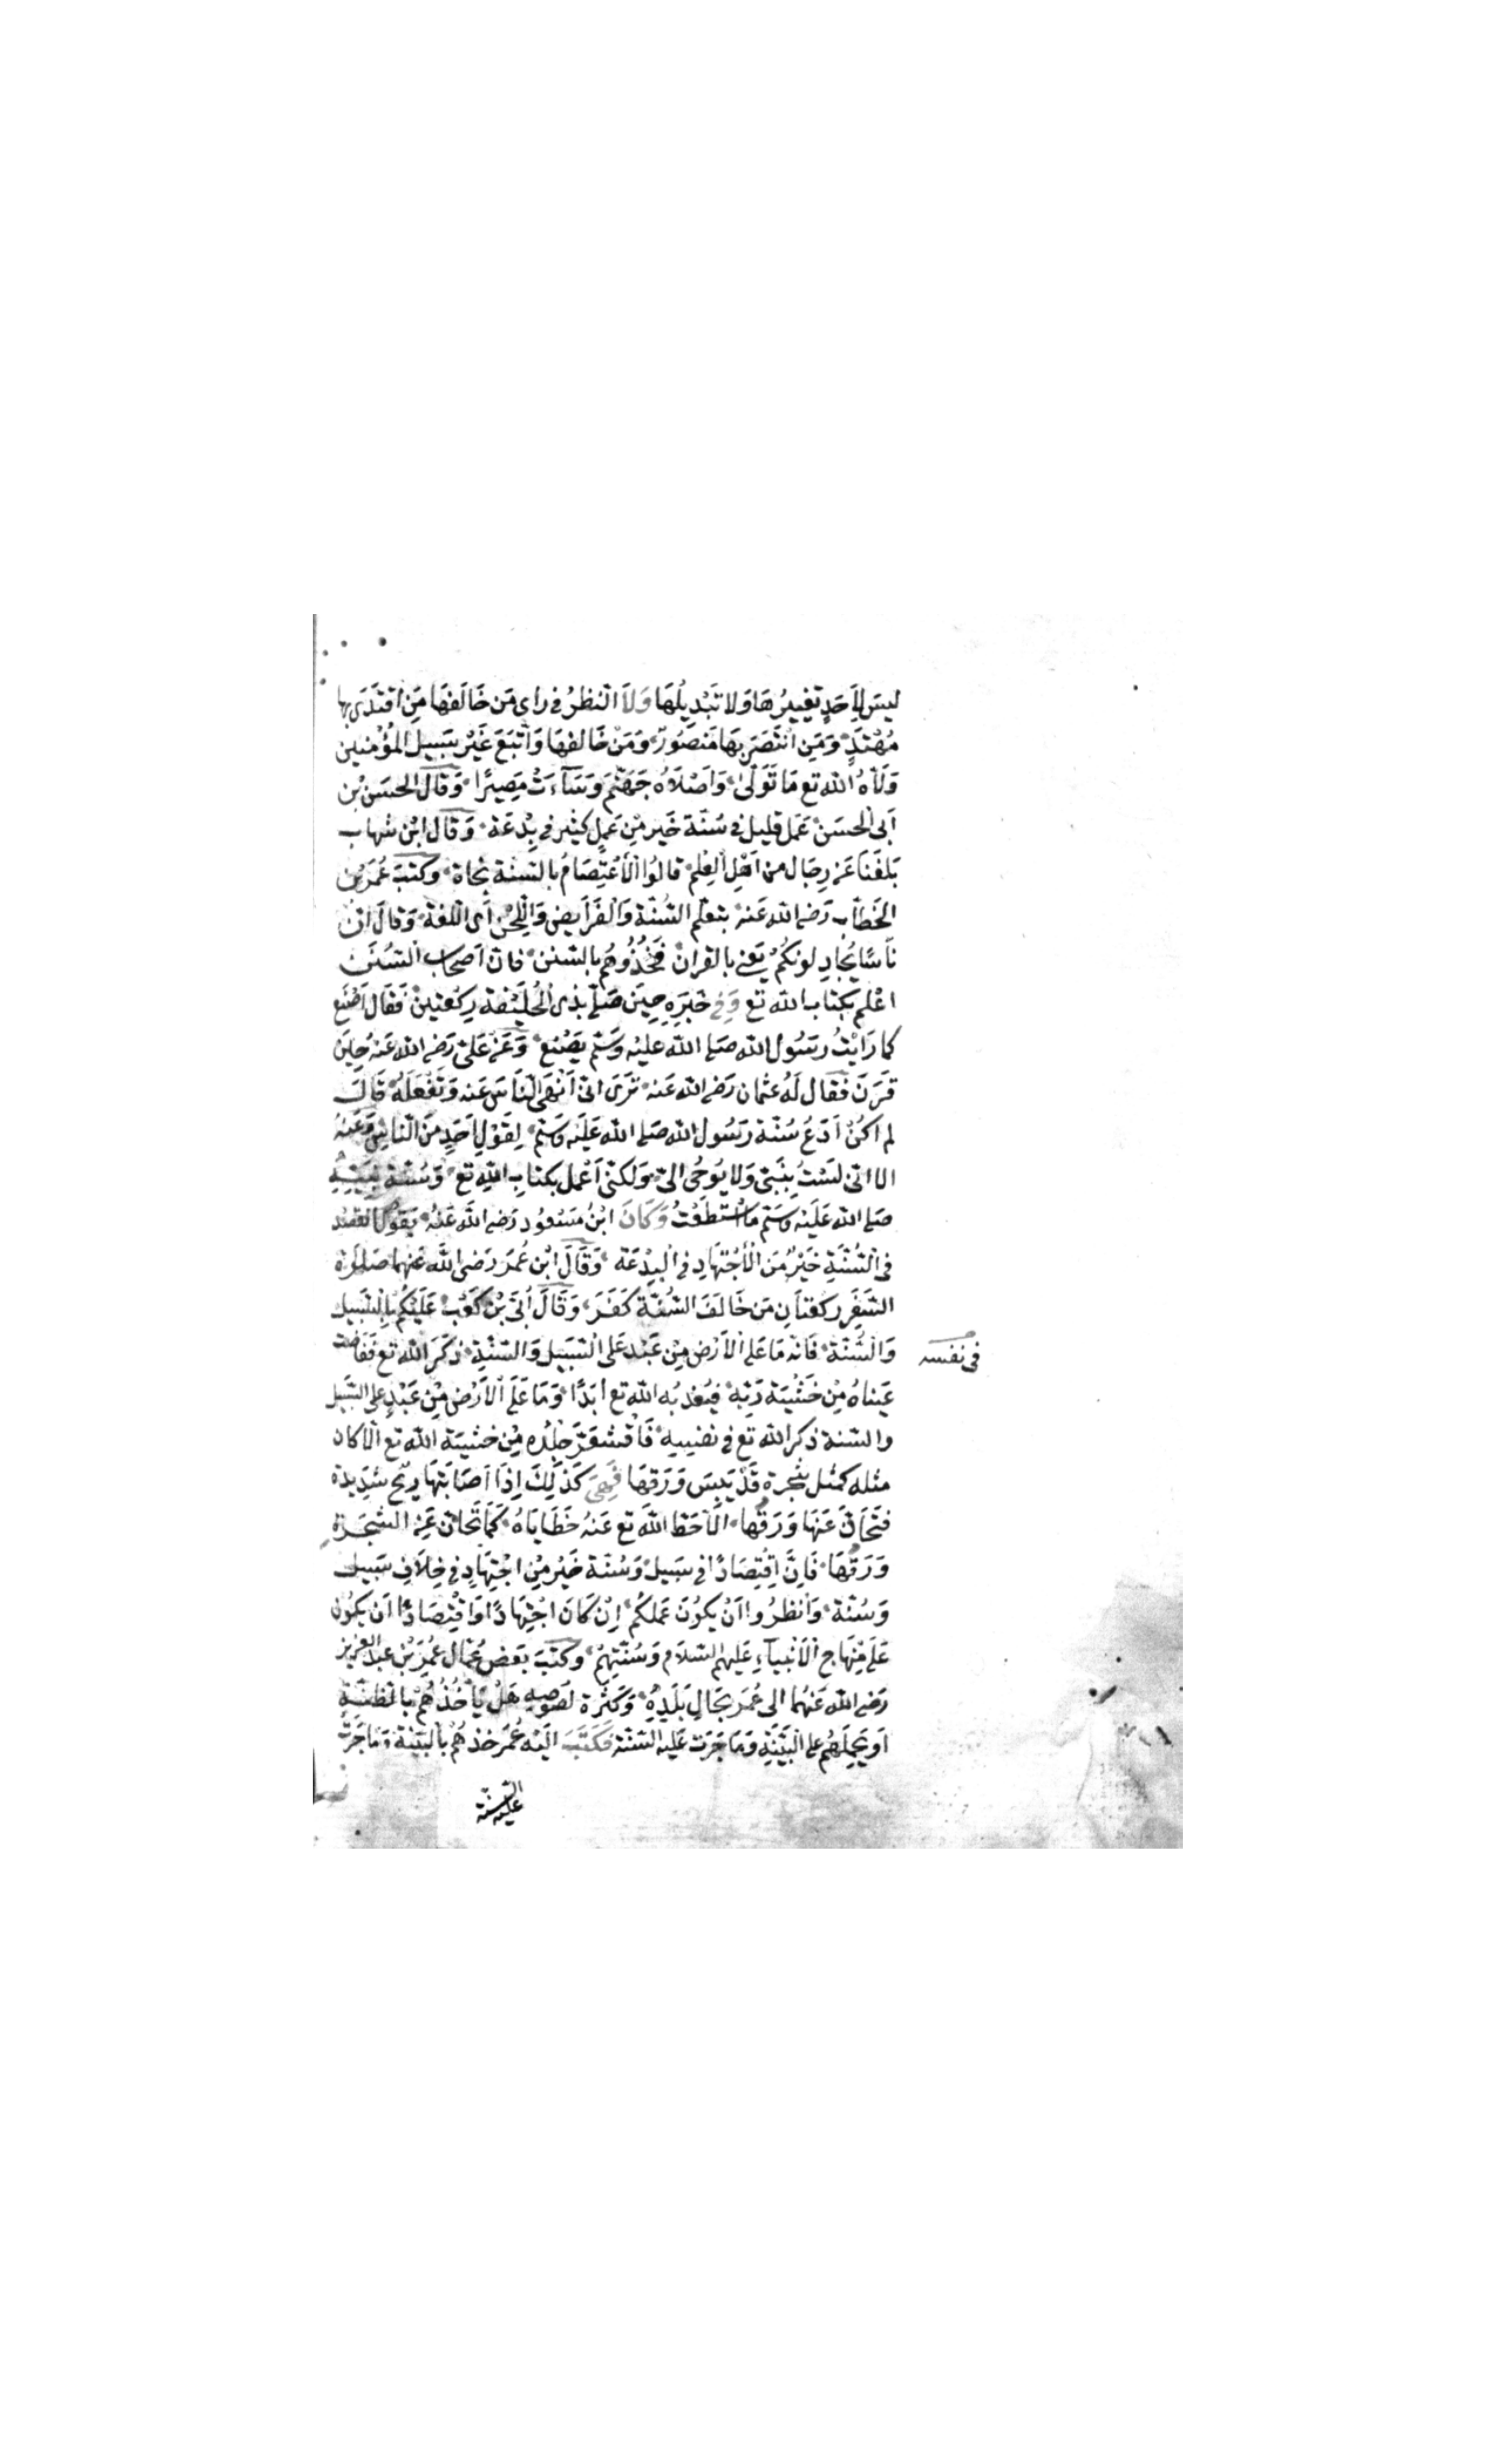 ليسَ لِاَحَدٍ تَغْيِيرُهَا وَلا تَبْدِيلُهَا وَلاَ النّظرُ فى رَاى مَن خَالَفهَا مَنِ اقتَدَى بها
مُهْتَدٍ وَمَنِ انْتَصَرَ بِهَا مَنصُورٌ وَمَنْ خَالفهَا وَاتّبَعَ غَيْرَ سَبيلِ المؤمنين
وَلّاهُ الله تع مَا تَوَلّىٰ وَاَصْلَاهُ جَهَنّمَ وَسَآءَتْ مَصِيرًا وَقَالَ الحسَن بْن
اَبى الحسَن عَمَل قليل فى سُنّة خَير مِن عَمَلٍ كثير فى بِدْعَة وَقَالَ ابْن شهاب
بَلغَنَا عَن رِجَال من اَهْلِ العِلم قالوا الاعْتِصَامُ بالسّنة نجاة وكتبَ عُمَر بْن
الخطاب رَضى الله عَنه بتعلّم السُّنّة وَالفَرَايض وَاللّحْن اَى اللّغة وَقالَ انّ
نَاسًا يُجادِلونكمْ يَعْنى بالقران فَخُذُوهُم بالسّنن فانّ اَصحَاب السُّنَن
اعْلم بكتاب الله تع وَفى خَبَرِهِ حِينَ صَلّى بذى الحُلَيْفة ركعتين فَقال اَصْنَع
كما رَايْتُ رسُول الله صَلى الله عليه وَسَلّم يَصْنع وَعَنْ عَلىّ رَضى الله عَنهُ حِين
قَرَنَ فَقال لَهُ عثمان رَضى الله عَنه تَرَى انّى اَنْهَى النّاسَ عَنه وَتَفْعَلُهُ قَالَ
لم اكُنْ اَدَعُ سُنّةَ رَسُول الله صَلى الله عَلَيه وَسَلم لِقَوْلِ اَحَدٍ مِنَ النّاسِ وَعَنْهُ
الا انى لَسْتُ بِنَبىّ وَلا يُوحَى الىّ وَلكنّى اَعْمل بكتابِ اللهِ تع وَسُنّة نبيّهِ
صَلى الله عَلَيْه وَسَلّم مَا اسْتَطَعْتُ وَكَانَ ابْنُ مَسْعُود رَضى الله عَنْهُ يَقولُ القصْد
فى السُّنّةِ خَيْرٌ مِنَ الاُجْتِهَادِ فى البِدْعَة وَقَالَ ابْن عُمَرَ رَضى اللّه عَنهما صَلَوة
السّفَر ركعتانِ مَن خَالَفَ السُّنّةَ كَفَرَ وَقَالَ اُبَىّ بْن كَعْب عَلَيْكم بالسَّبِيل
وَالسُّنّة فَانّه مَا عَلى الاَرْض مِن عَبْد عَلى السَّبيل وَالسّنّةِ ذكَرَ الله تع فَفَاضَت
فى نفسه
عَينَاهُ مِنْ خَشْيَة رَبّهِ فيُعَذّبُه الله تع ابَدًا وَمَا عَلَى الاَرْضِ مِن عَبْدٍ على السّبيل
والسّنة ذكر الله تع فى نفسِهِ فَاقشعَرّ جلْدُه مِن خشيَة الله تع الّا كان
مثله كمثل شجرة قَدْ يَبِسَ وَرَقهَا فَهِىَ كَذلِكَ اِذَا اَصَابَتهَا رِيحٌ شدِيدة
فتَحَاتّ عَنهَا وَرَقُهَا الّا حَطّ الله تع عَنهُ خَطَايَاهُ كَمَا تَحَاتّ عَنِ الشجَرَة
وَرَقُهَا فَاِنَّ اِقْتِصَادًا فى سَبيل وَسُنّة خَيْر مِن اجْتِهَادٍ فى خِلَافِ سَبيل
وَسُنّة وَانظرُوا اَنْ يكُونَ عَملكُم اِنْ كَانَ اجْتِهَادًا وَاقْتِصَادًا اَن يكُون
عَلى مِنهَاج الاَنْبيآءِ عَليهم السّلَام وَسُنّتِهِمْ وَكتَبَ بَعضُ عُمّال عُمَرَ بْن عبد العزيز
رَضى الله عَنْهُما الى عُمَر بِحَالِ بَلَدِهِ وَكَثْرة لصُوصِهِ هَلْ يَأخُذُهُمْ بالظنّةِ
اَو يَحْمِلَهُم على البَيّنَةِ وَمَا جَرَت عَليه السّنّة فكتَبَ اليْه عُمَر خذهُم بالبَيّنة وَمَا جَرَت
عليه السّنّة